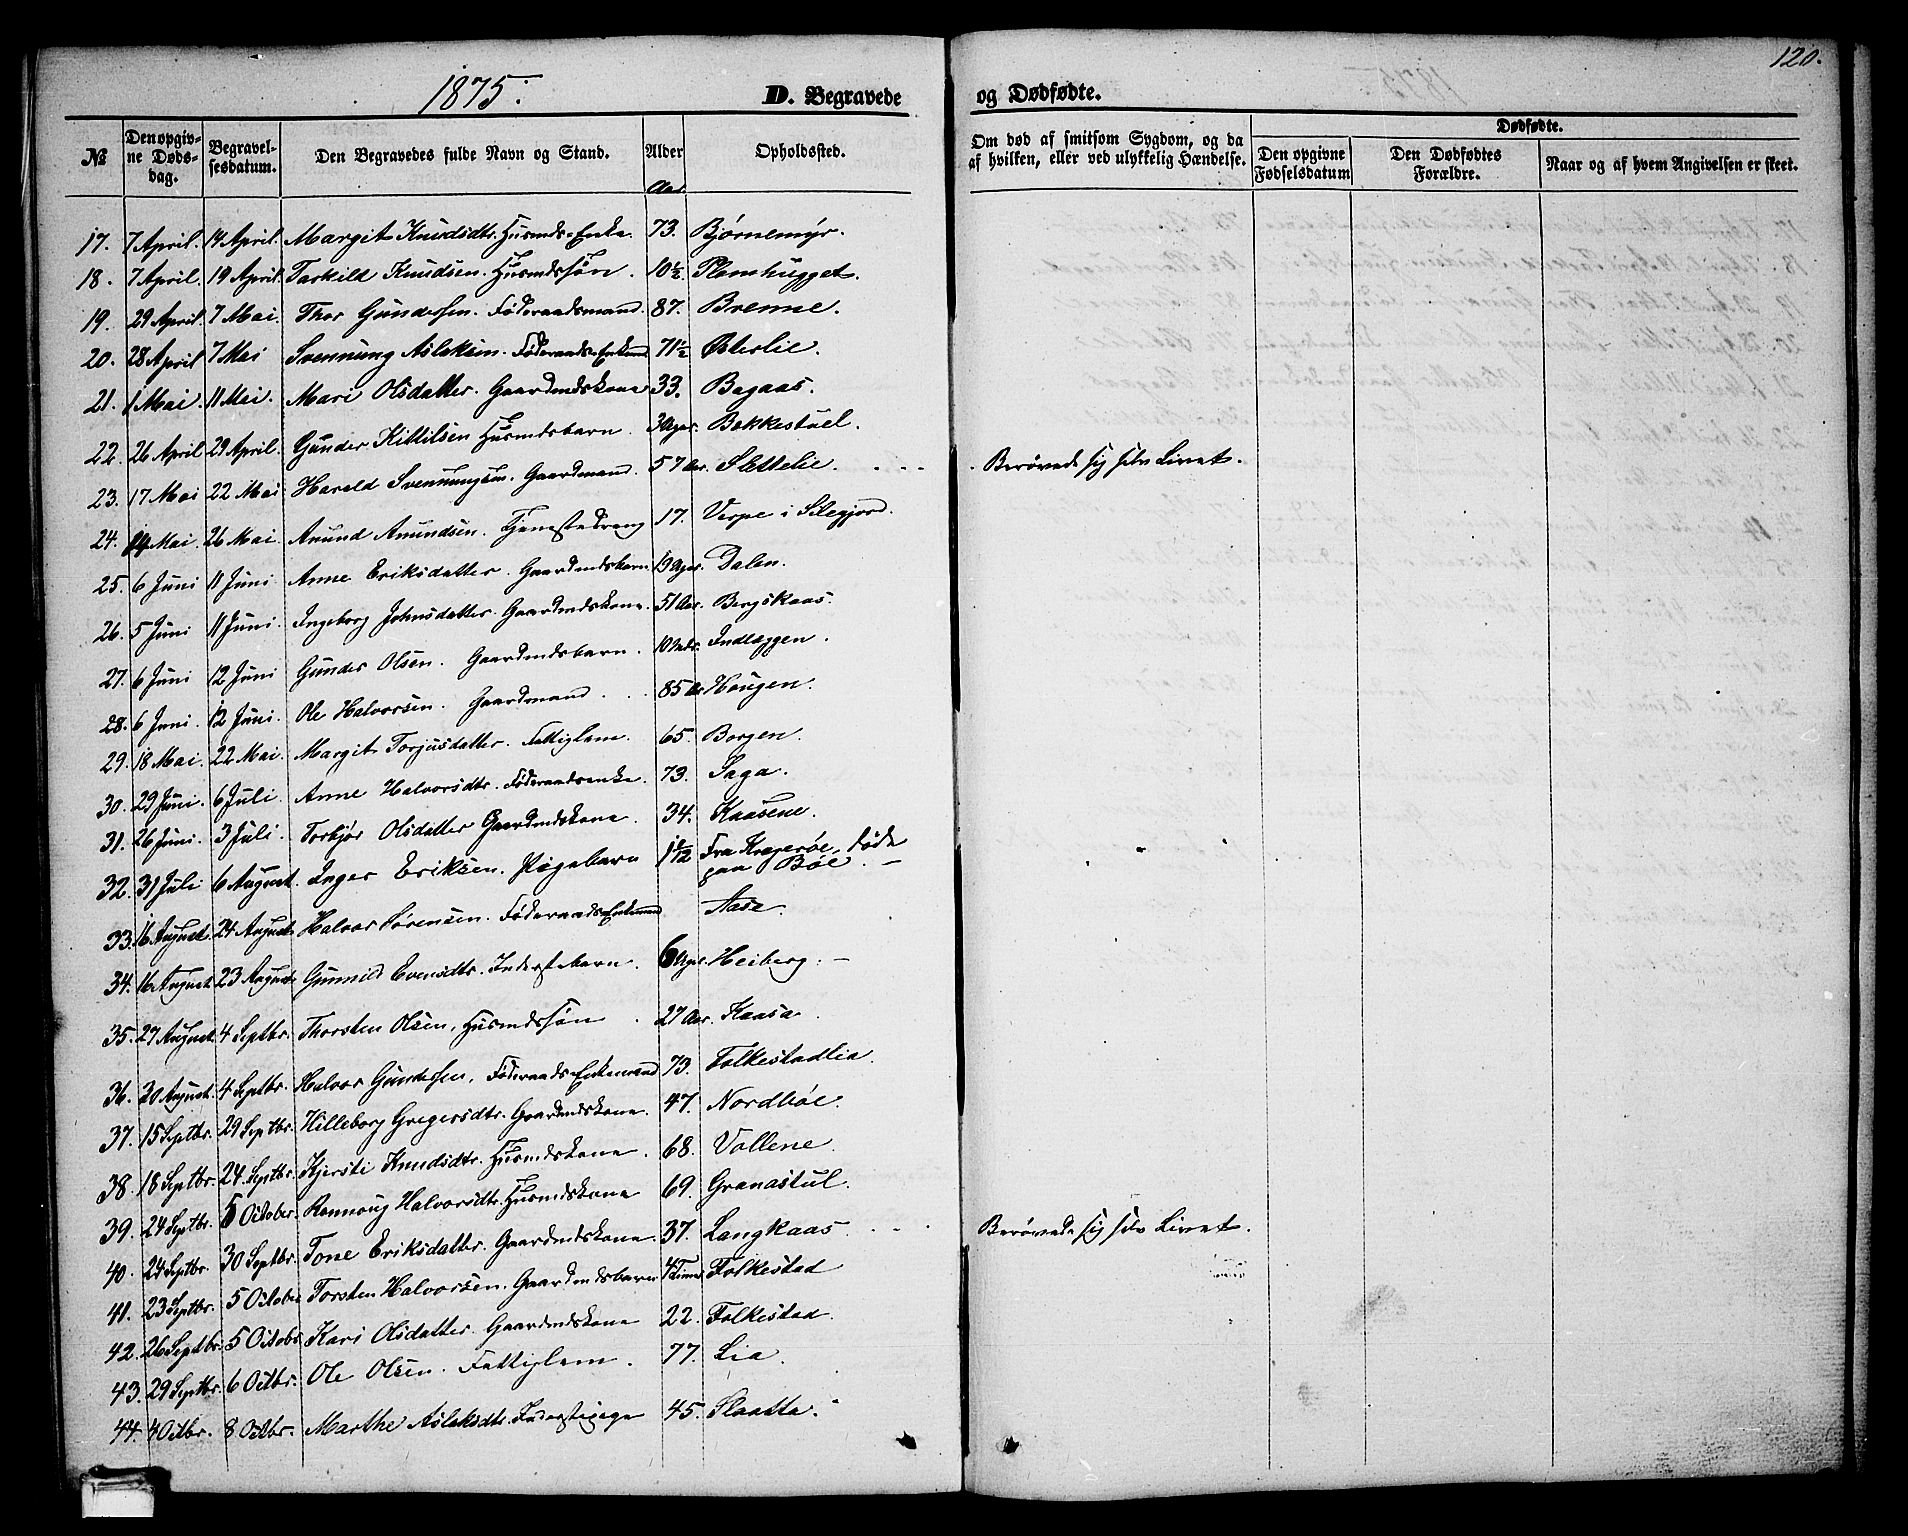 1875.
D. Begravede
og Dødfødte.
120.
No
Den opgivne Døds-dag.
Begravel-sesdatum.
Den Begravedes fulde Navn og Stand.
Alder
Opholdssted.
Om død af smitsom Sygdom, og da af hvilken, eller ved ulykkelig Hændelse.
Dødfødte.
Den opgivne Fødselsdatum
Den Dødfødtes Forældre.
Naar og af hvem Angivelsen er skeet.
Aar
17. 7 April. 14 April. Margit Knudsdtr. Husmds-Enke. 73. Bjørnemyr.
18. 7 April. 19 April. Tarkild Knudsen. Husmdssøn. 10½. Plomhugget.
19. 29 April. 7 Mai. Thor Gundersen. Føderaadsmand. 87. Brenne.
20. 28 April 7 Mai Svennung Aslaksen. Føderaads-Enkemd 71½ Østerlie.
21. 1 Mai. 11 Mai. Mari Olsdatter. Gaardmdskone 33. Bagaas.
22. 26 April 29 April. Gunder Kittilsen Husmdsbarn. 3 Uger. Bakkestuel.
23. 17 Mai 22 Mai Harald Svennungsen. Gaardmand. 57 Aar. Slettelie. Berøvede sig selv Livet.
24. 14 Mai. 26 Mai. Amund Amundsen. Tjenestedreng 17. Verpe i Silegjord.
25. 6 Juni 11 Juni Anne Eriksdatter. Gaardmdsbarn. 13 Uger. Dalen.
26. 5 Juni 11 Juni. Ingeborg Johnsdatter. Gaardmdskone. 51 Aar. Bergskaas.
27. 6 Juni 12 Juni Gunder Olsen. Gaardmdsbarn. 10 Mdr. Indlæggen.
28. 6 Juni. 12 Juni. Ole Halvorsen. Gaardmand. 85 Aar Haugen.
29. 18 Mai. 22 Mai. Margit Torjusdatter. Fattiglem. 65. Borgen.
30. 29 Juni. 6 Juli. Anne Halvorsdtr. Føderaadsenke. 73. Saga.
31. 26 Juni. 3 Juli. Torbjør Olsdatter Gaardmdskone. 34. Kaasene.
32. 31 Juli 6 August. Inger Eriksen. Pigebarn 1 1/12 Fra Kragerøe, døde
paa Bøe.
33. 16 August 24 August Halvor Sørensen. Føderaads-Enkemand Aasa.
34. 16 August 23 August Gunnild Evensdtr. Inderstebarn. 6 Uger Heiberg.
35. 27 August. 4 Septbr. Thorsten Olsen. Husmdssøn. 27 Aar. Kaasa.
36. 30 August. 4 Septbr. Halvor Gundersen. Føderaads-Enkemand 73. Folkestadlia.
37. 15 Septbr. 29 Septbr. Hilleborg Gregersdtr. Gaardmdskone. 47. Nordbøe.
38. 18 Septbr. 24 Septbr. Kjersti Knudsdtr. Husmdskone. 68. Vollene.
39. 24 Septbr. 5 October. Rannoug Halvorsdtr. Husmdskone 69. Granastul.
40. 24 Septbr. 30 Septbr. Tone Eriksdatter. Gaardmdskone. 37. Langkaas. Berøvede sig selv Livet.
41. 23 Septbr. 5 October Torsten Halvorsen. Gaardmdsbarn 4 Timer Folkestad
42. 26 Septbr. 5 Octobr. Kari Olsdatter. Gaardmdskone 22. Folkestad.
43. 29 Septbr. 6 Octbr. Ole Olsen. Fattiglem. 77. Lia.
44. 4 Octbr. 8 Octbr. Marthe Aslaksdtr. Inderstepige 45. Slaatta.